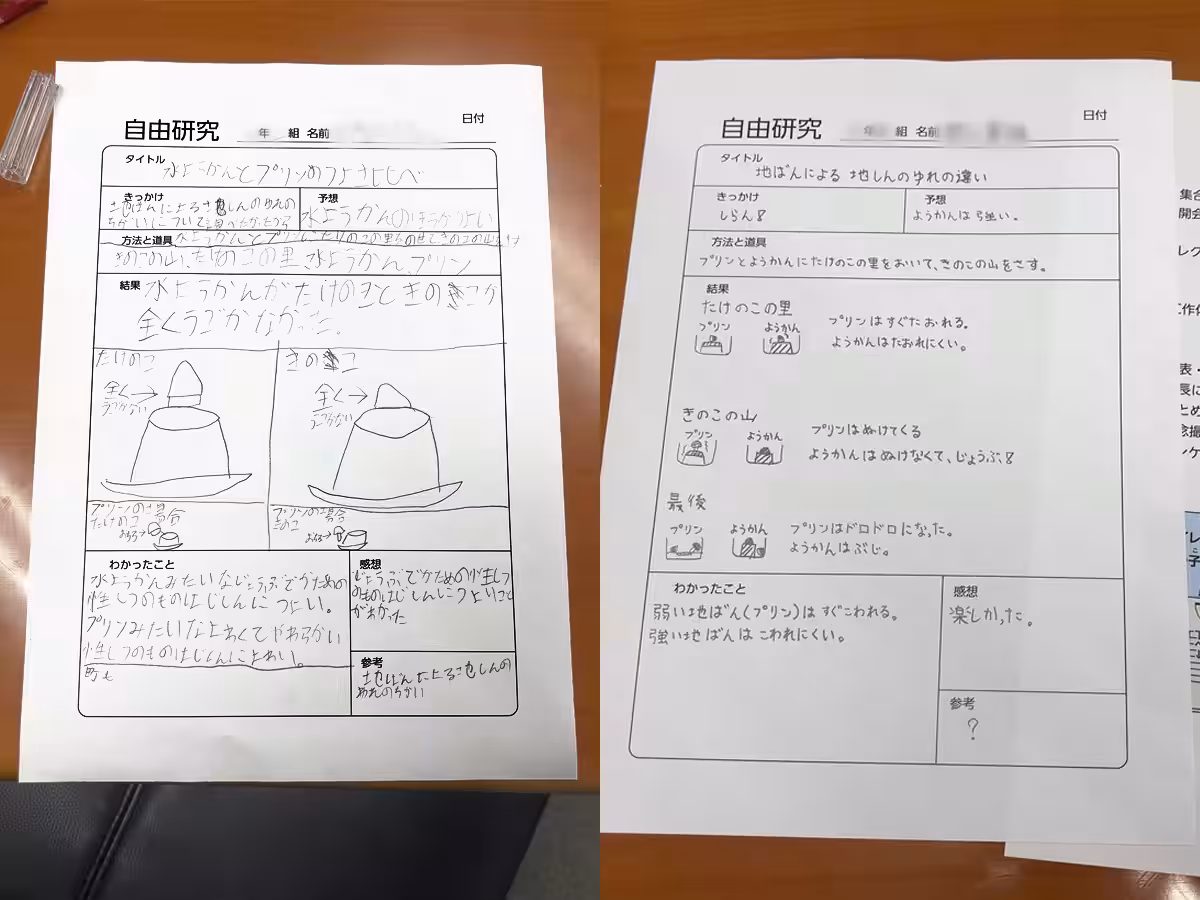 自由研究
年 組 名前
日付
タイトル
水ようかんとプリンのつよさくらべ
きっかけ
地ばんによる地しんのゆれの
ちがいについて調べたかったから
予想
水ようかんのほうがつよい
方法と道具
水ようかんとプリンにたけのこの里をのせてきのこの山をさす
きのこの山、たけのこの里、水ようかん、プリン
結果
水ようかんがたけのことときのこが
全くうごかなかった。
たけのこ
全く→
うごかない
きのこ
全く→
うごかない
プリンの場合
たけのこ
おちる→
プリンの場合
きのこ
おちる→
わかったこと
水ようかんみたいなじょうぶでかための
性しつのものはじしんにつよい。
プリンみたいなよわくてやわらかい
性しつのものはじしんによわい。
町も
感想
じょうぶでかための性しつ
のものはじしんにつよいこと
がわかった
参考
地ばんによる地しんの
ゆれのちがい
自由研究
年 組 名前
日付
タイトル
地ばんによる 地しんのゆれの違い
きっかけ
しらん!
予想
ようかんは強い。
方法と道具
プリンとようかんにたけのこの里をおいて、きのこの山をさす。
結果
たけのこの里
プリン
ようかん
プリンはすぐたおれる。
ようかんはたおれにくい。
きのこの山
プリン
ようかん
プリンはぬけてくる
ようかんはぬけなくて、じょうぶ!
最後
プリン
ようかん
プリンはドロドロになった。
ようかんはぶじ。
わかったこと
弱い地ばん(プリン)はすぐこわれる。
強い地ばんはこわれにくい。
感想
楽しかった。
参考
?
集合
開会
レク
工作体
表・
長に
とめ
念撮
ンケ